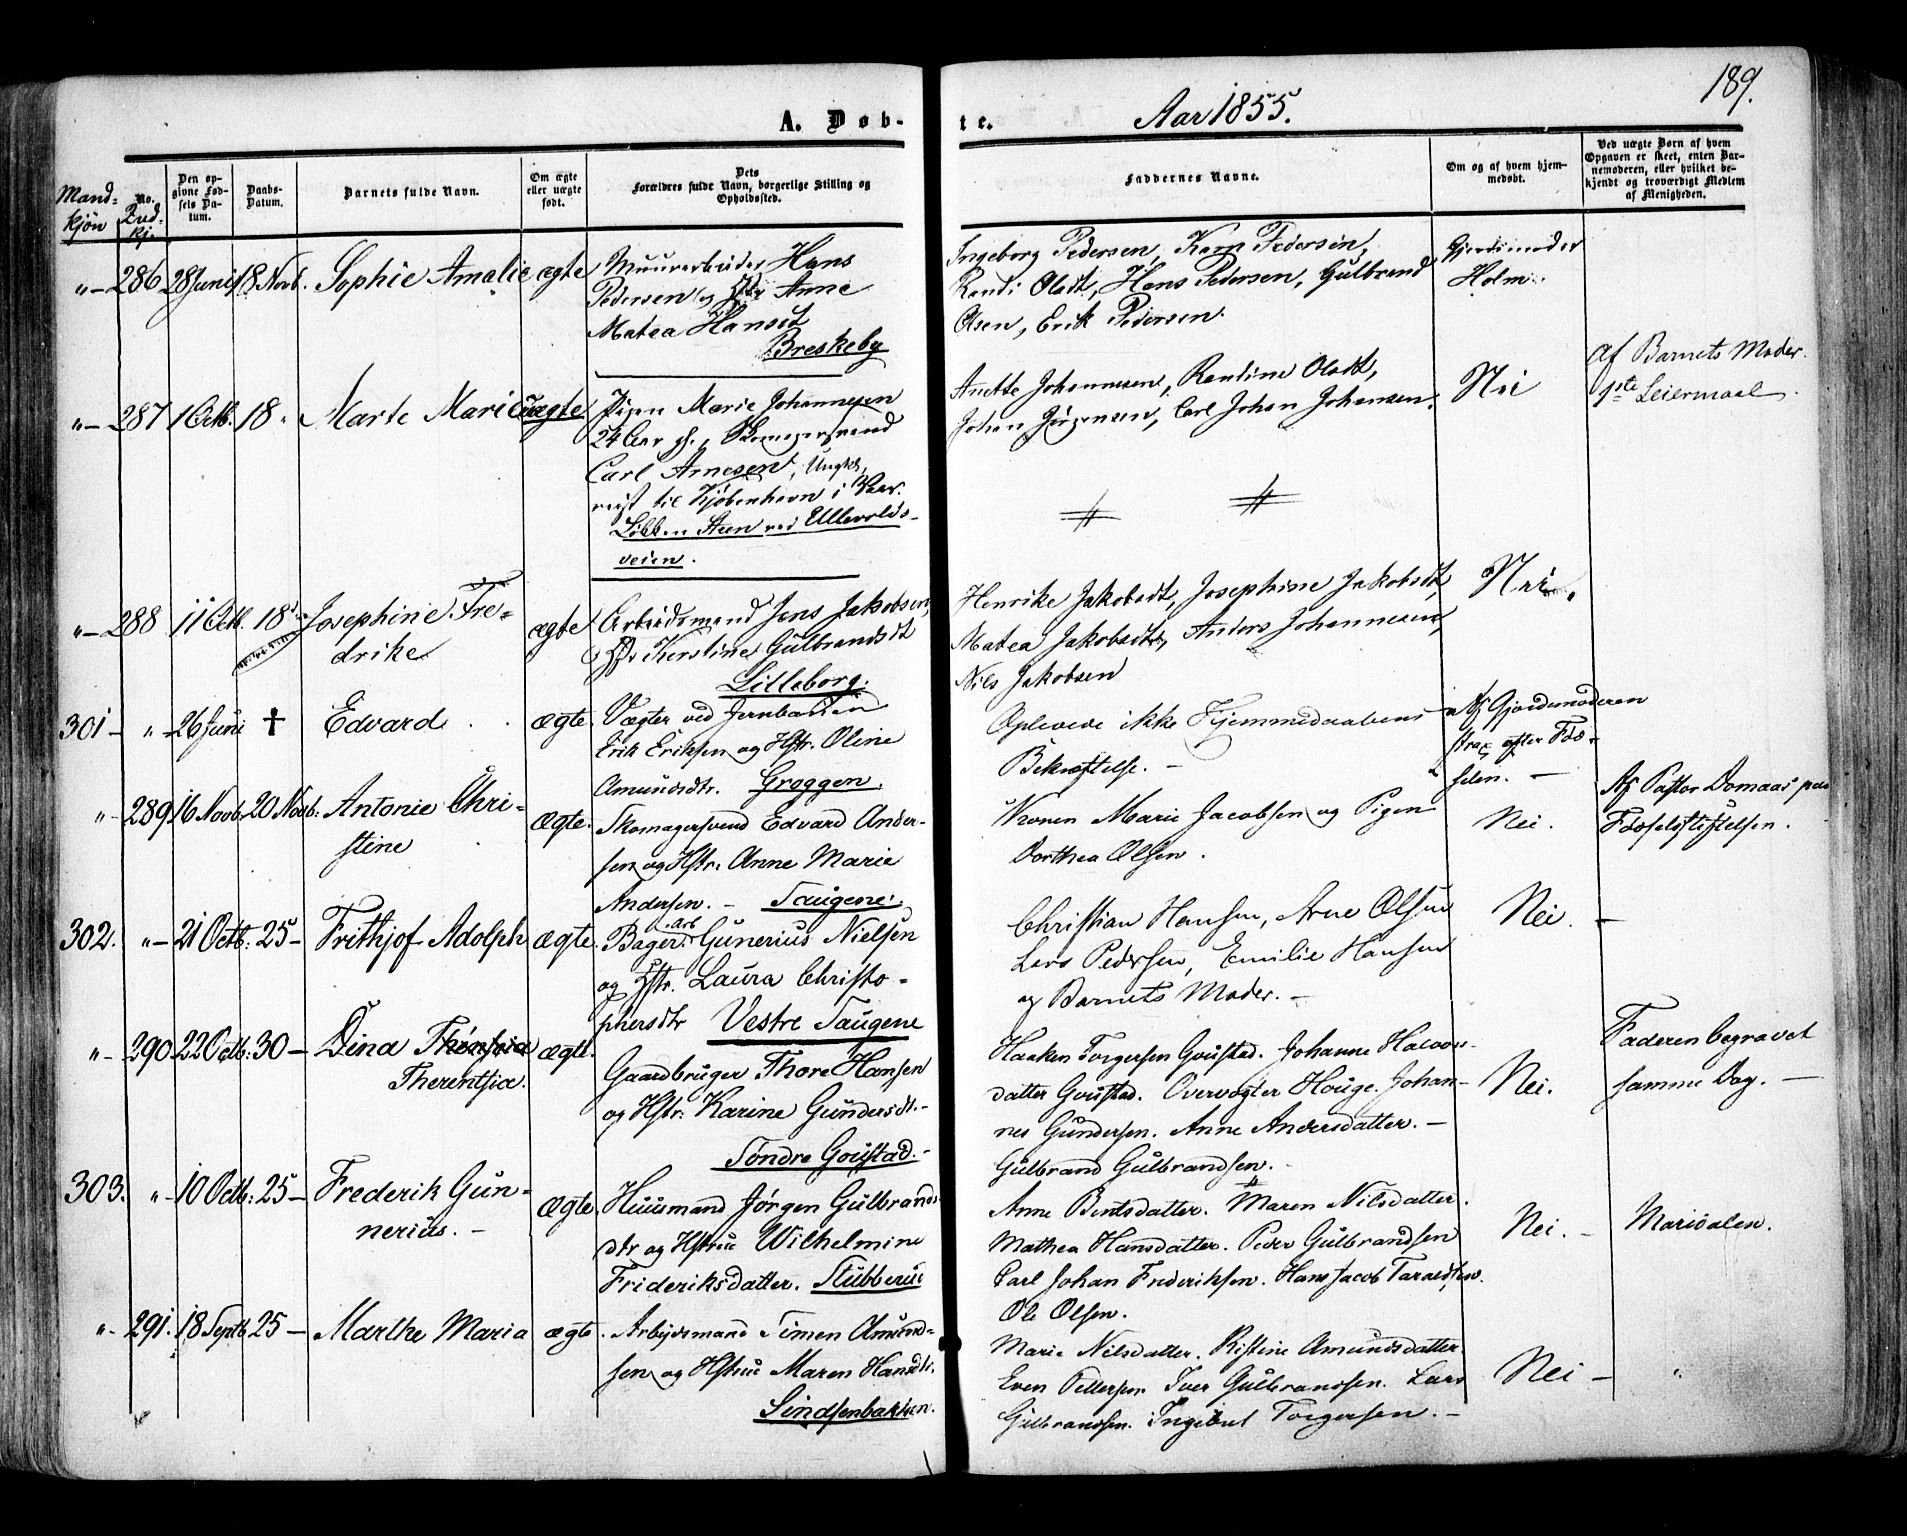 189.
A. Døbte. Aar 1855.
Mandkjøn
No. Qvdkj.
Den opgivne Fødsels Datum.
Daabs-Datum.
Barnets fulde Navn.
Om ægte eller uægte født.
Dets Forældres fulde Navn, borgerlige Stilling og Opholdssted.
Faddernes Navne.
Om og af hvem hjemmedøbt.
Ved uægte Børn af hvem Opgaven er skeet, enten Barnemoderen, eller hvilket bekjendt og troværdigt Medlem af Menigheden.
"– 286 28 Juni 18 Novb. Sophie Amalie ægte
Muurarbeider Hans
Pedersen og Hstr Anne
Matea Hansdt
Breskeby
Ingeborg Pedersen, Karn Pedersen,
Randi Olsdt, Hans Pedersen, Gulbrand
Olsen, Erik Pedersen.
Gjordemoder
Holm.
"– 287 1 Octb. 18 " Marte Marie uægte
Pigen Marie Johannesen
24 Aar gl., Skomagersvend
Carl Arnesen, Ungk.,
reist til Kjøbenhavn i Vaar.
Løkken Steen ved Ullevolds-
veien.
Anette Johannesen, Rantine Olsdt,
Johan Jørgensen, Carl Johan Johansen.
Nei
af Barnets Moder.
1ste Leiermaal.
"– 288 11 Octb. 18 Josephine Fre-
drike
ægte
Arbeidsmand Jens Jakobsen,
Hstr Kerstine Gulbrandsdt
Lilleborg.
Henrike Jakobsdt, Josephine Jakobsdt,
Matea Jakobsdt, Anders Johannesen,
Nils Jakobsen
Nei.
301 – "– 26 Juni † Edvard. ægte.
Vægter ved Jernbanen
Erik Eriksen og Hstr. Oline
Amundsdtr. Groggen.
Oplevede ikke Hjemmedaabens
Bekræftelse. –
Af Gjordemoderen
strax efter Fød-
selen. –
"– 289 16 Novb. 20 Novb: Antonie Chri-
stine
ægte.
Skomagersvend Edvard Ander-
sen og Hstr. Anne Marie
Andersen. – Taugene.
Konen Marie Jacobsen og Pigen
Dorthea Olsen.
Nei.
Af Pastor Domaas paa
Fødselsstiftelsen.
302. "– 21 Octb: 25 – Frithjof Adolph ægte.
Bager arb. Gunerius Nielsen
og Hstr. Laura Christo-
phersdtr Vestre Taugene
Christian Hansen, Arne Olsen
Lars Pedersen, Emilie Hansen
og Barnets Moder. –
Nei. –
"– 290 22 Octb: 30 – Dina
Therentsia.
ægte.
Gaardbruger Thore Hansen
og Hstr: Karine Gundersdt. –
Søndre Goustad. –
Haaken Torgersen Goustad. Johanne Halvors-
datter Goustad. Overvægter Houge. Johan-
nes Gundersen. Anne Andersdatter. –
Gulbrand Gulbrandsen. –
Nei.
Faderen begravet
samme Dag. –
303. "– 10 Octb: 25 – Frederik Gun-
nerius. –
ægte.
Huusmand Jørgen Gulbrands-
dtr og Hstrue Wilhelmine
Frideriksdatter. Stubberud
Anne Berntsdatter. Maren Nilsdatter.
Mathea Hansdatter. Peder Gulbrandsen
Carl Johan Frideriksen. Hans Jacob Taraldsen.
Ole Olsen.
Nei. –
Maridalen.
"– 291. 18 Septb 25 – Marthe Maria ægte.
Arbejdsmand Simen Amund-
sen og Hstrue Maren Hansdtr.
Sindsenbakken.
Marie Nilsdatter. Kistine Amundsdatter
Even Pettersen. Iver Gulbrandsen. Lars
Gulbrandsen. Ingebret Torgersen. –
Nei –
"